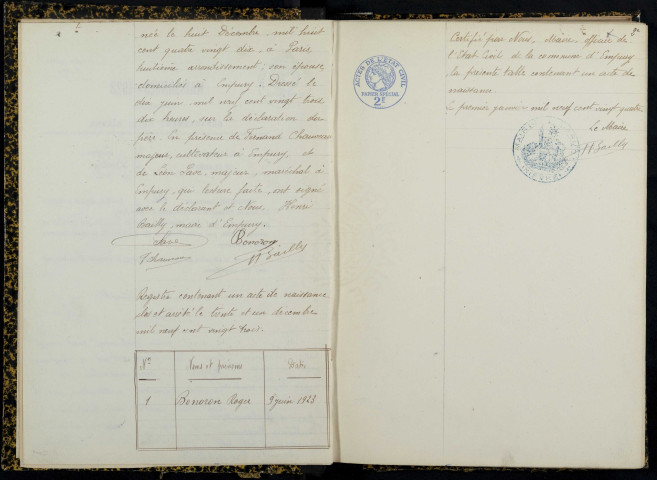 née le huit Décembre mil huit
cent quatre vingt dix, à Paris
huitième arrondissement; son épouse
domiciliés à Empury. Dressé le
dix juin mil neuf cent vingt trois
dix heures, sur la déclaration du
père. En présence de Fernand Chauveau
majeur, cultivateur à Empury, et
de Léon majeur, maréchal à
Empury, qui lecture faite, ont signé
avec le déclarant et Nous Henri
Bailly, maire d'Empury.
Benoron
F Chauveau
H Bailly
Registre contenant un acte de naissance
clos et arrêté le trente et un décembre
mil neuf cent vingt trois.
Nos
Noms et prénoms
Dates
1
Benoron Roger
9 juin 1923
ACTES DE L'ETAT CIVIL
PAPIER SPECIAL
2F
Certifié par Nous, Maire, officier de
l'Etat-Civil de la commune d'Empury
la présente table contenant un acte de
naissance.
Le premier janvier mil neuf cent vingt quatre
Le Maire
H Bailly